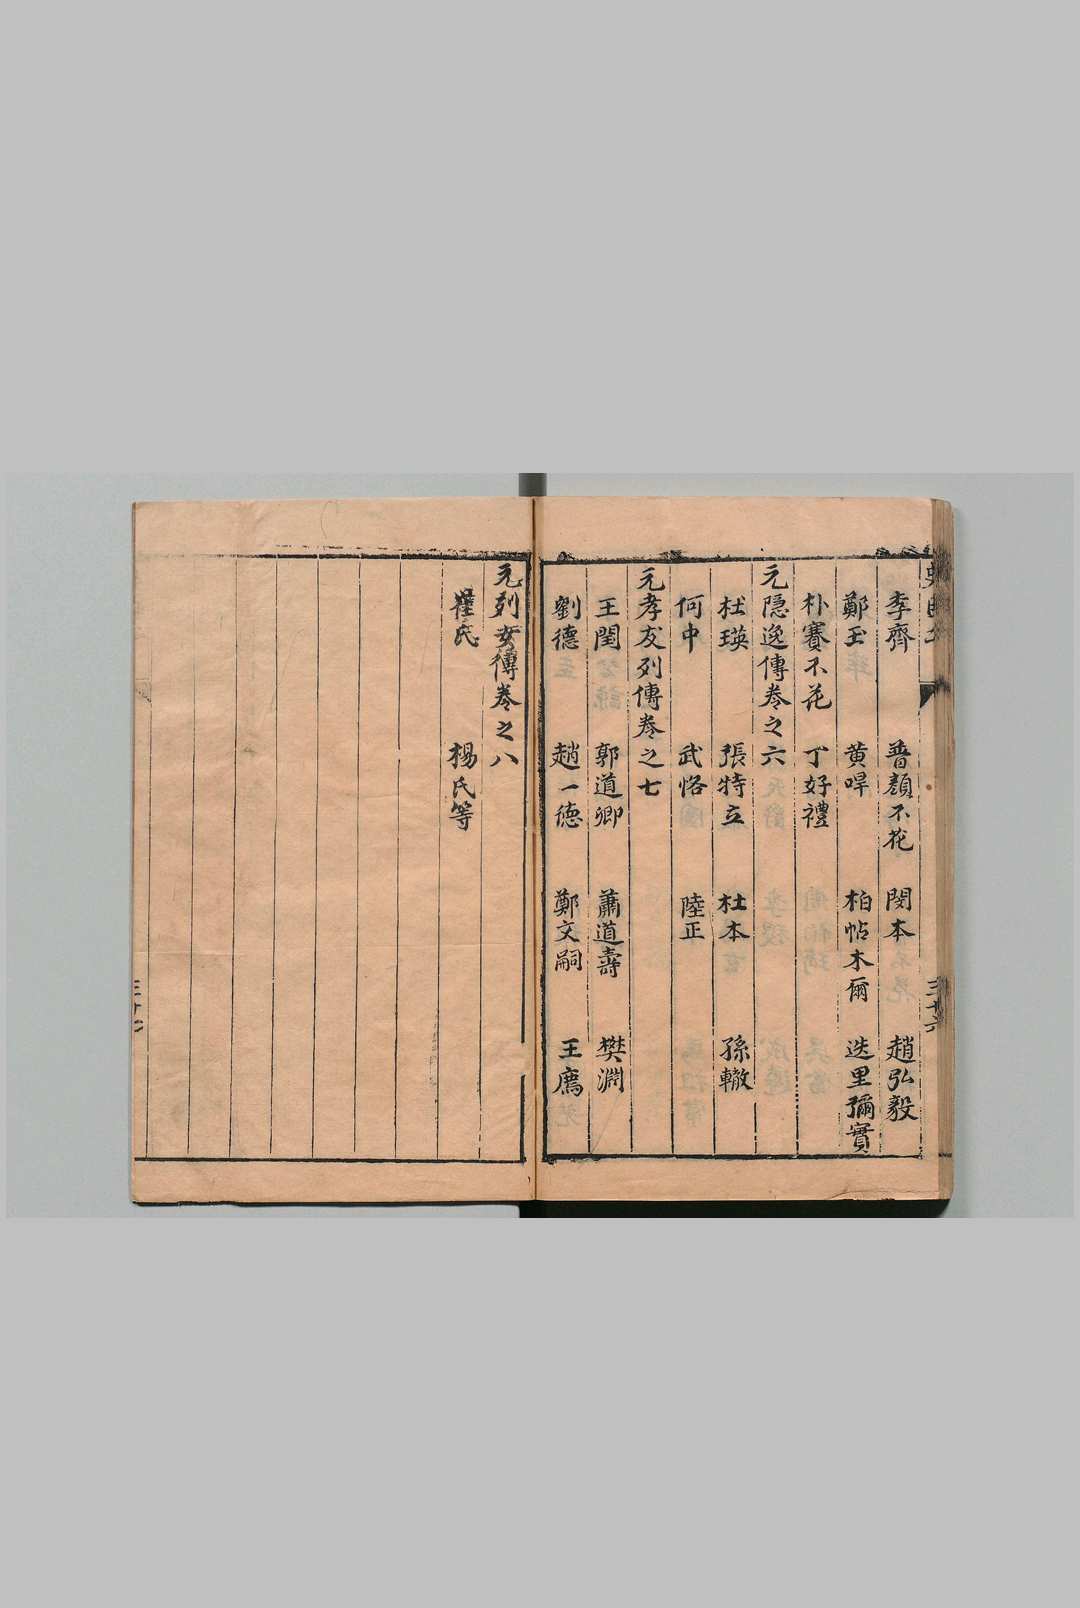 李齊 普顏不花 閔本 趙弘毅
鄭玉 黃㖔 柏帖木爾 迭里彌實
朴賽不花 丁好禮
元隱逸傳卷之六
杜瑛 張特立 杜本 孫轍
何中 武恪 陸正
元孝友列傳卷之七
王閏 郭道卿 蕭道壽 樊淵
劉德 趙一德 鄭文嗣 王薦
元列女傳卷之八
崔氏 楊氏等
三十六
三十七